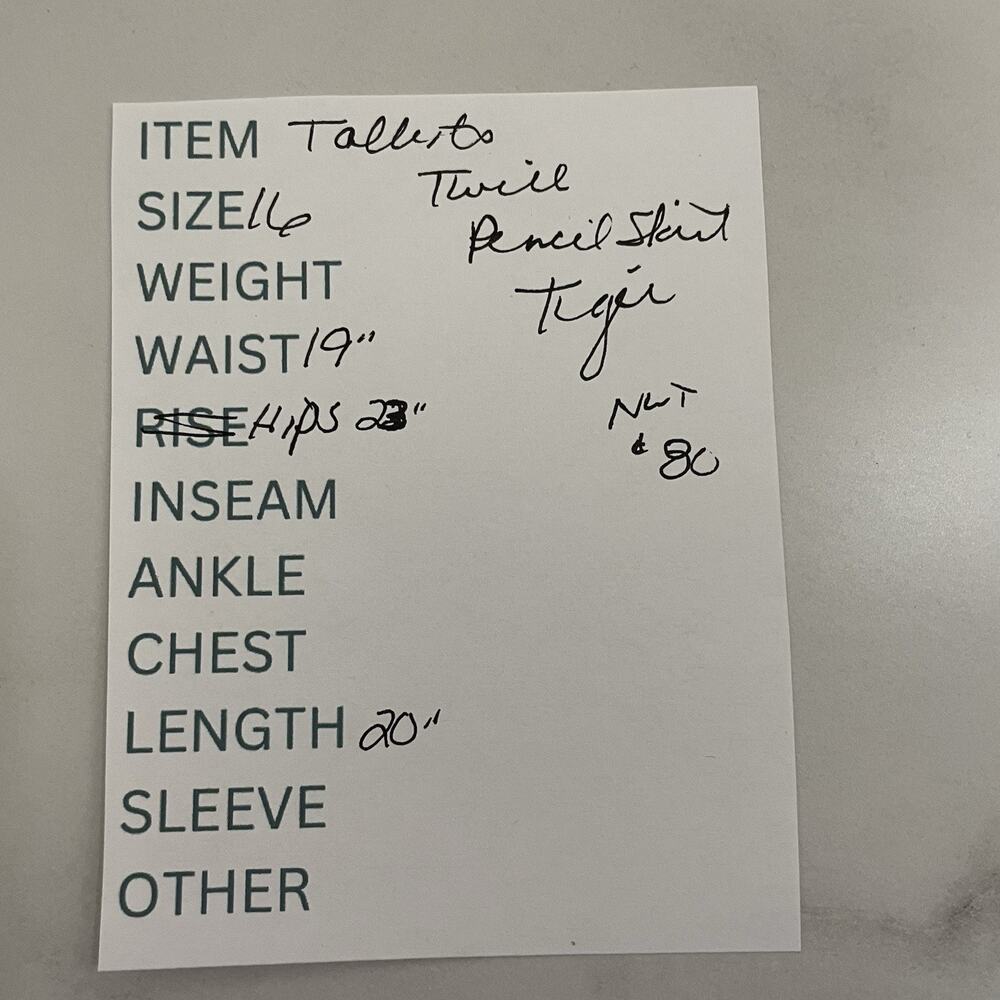 ITEM Talbots
Twill
SIZE 16
Pencil Skirt
WEIGHT
Tiger
WAIST 19"
NWT
RISE Hips 23"
$80
INSEAM
ANKLE
CHEST
LENGTH 20"
SLEEVE
OTHER